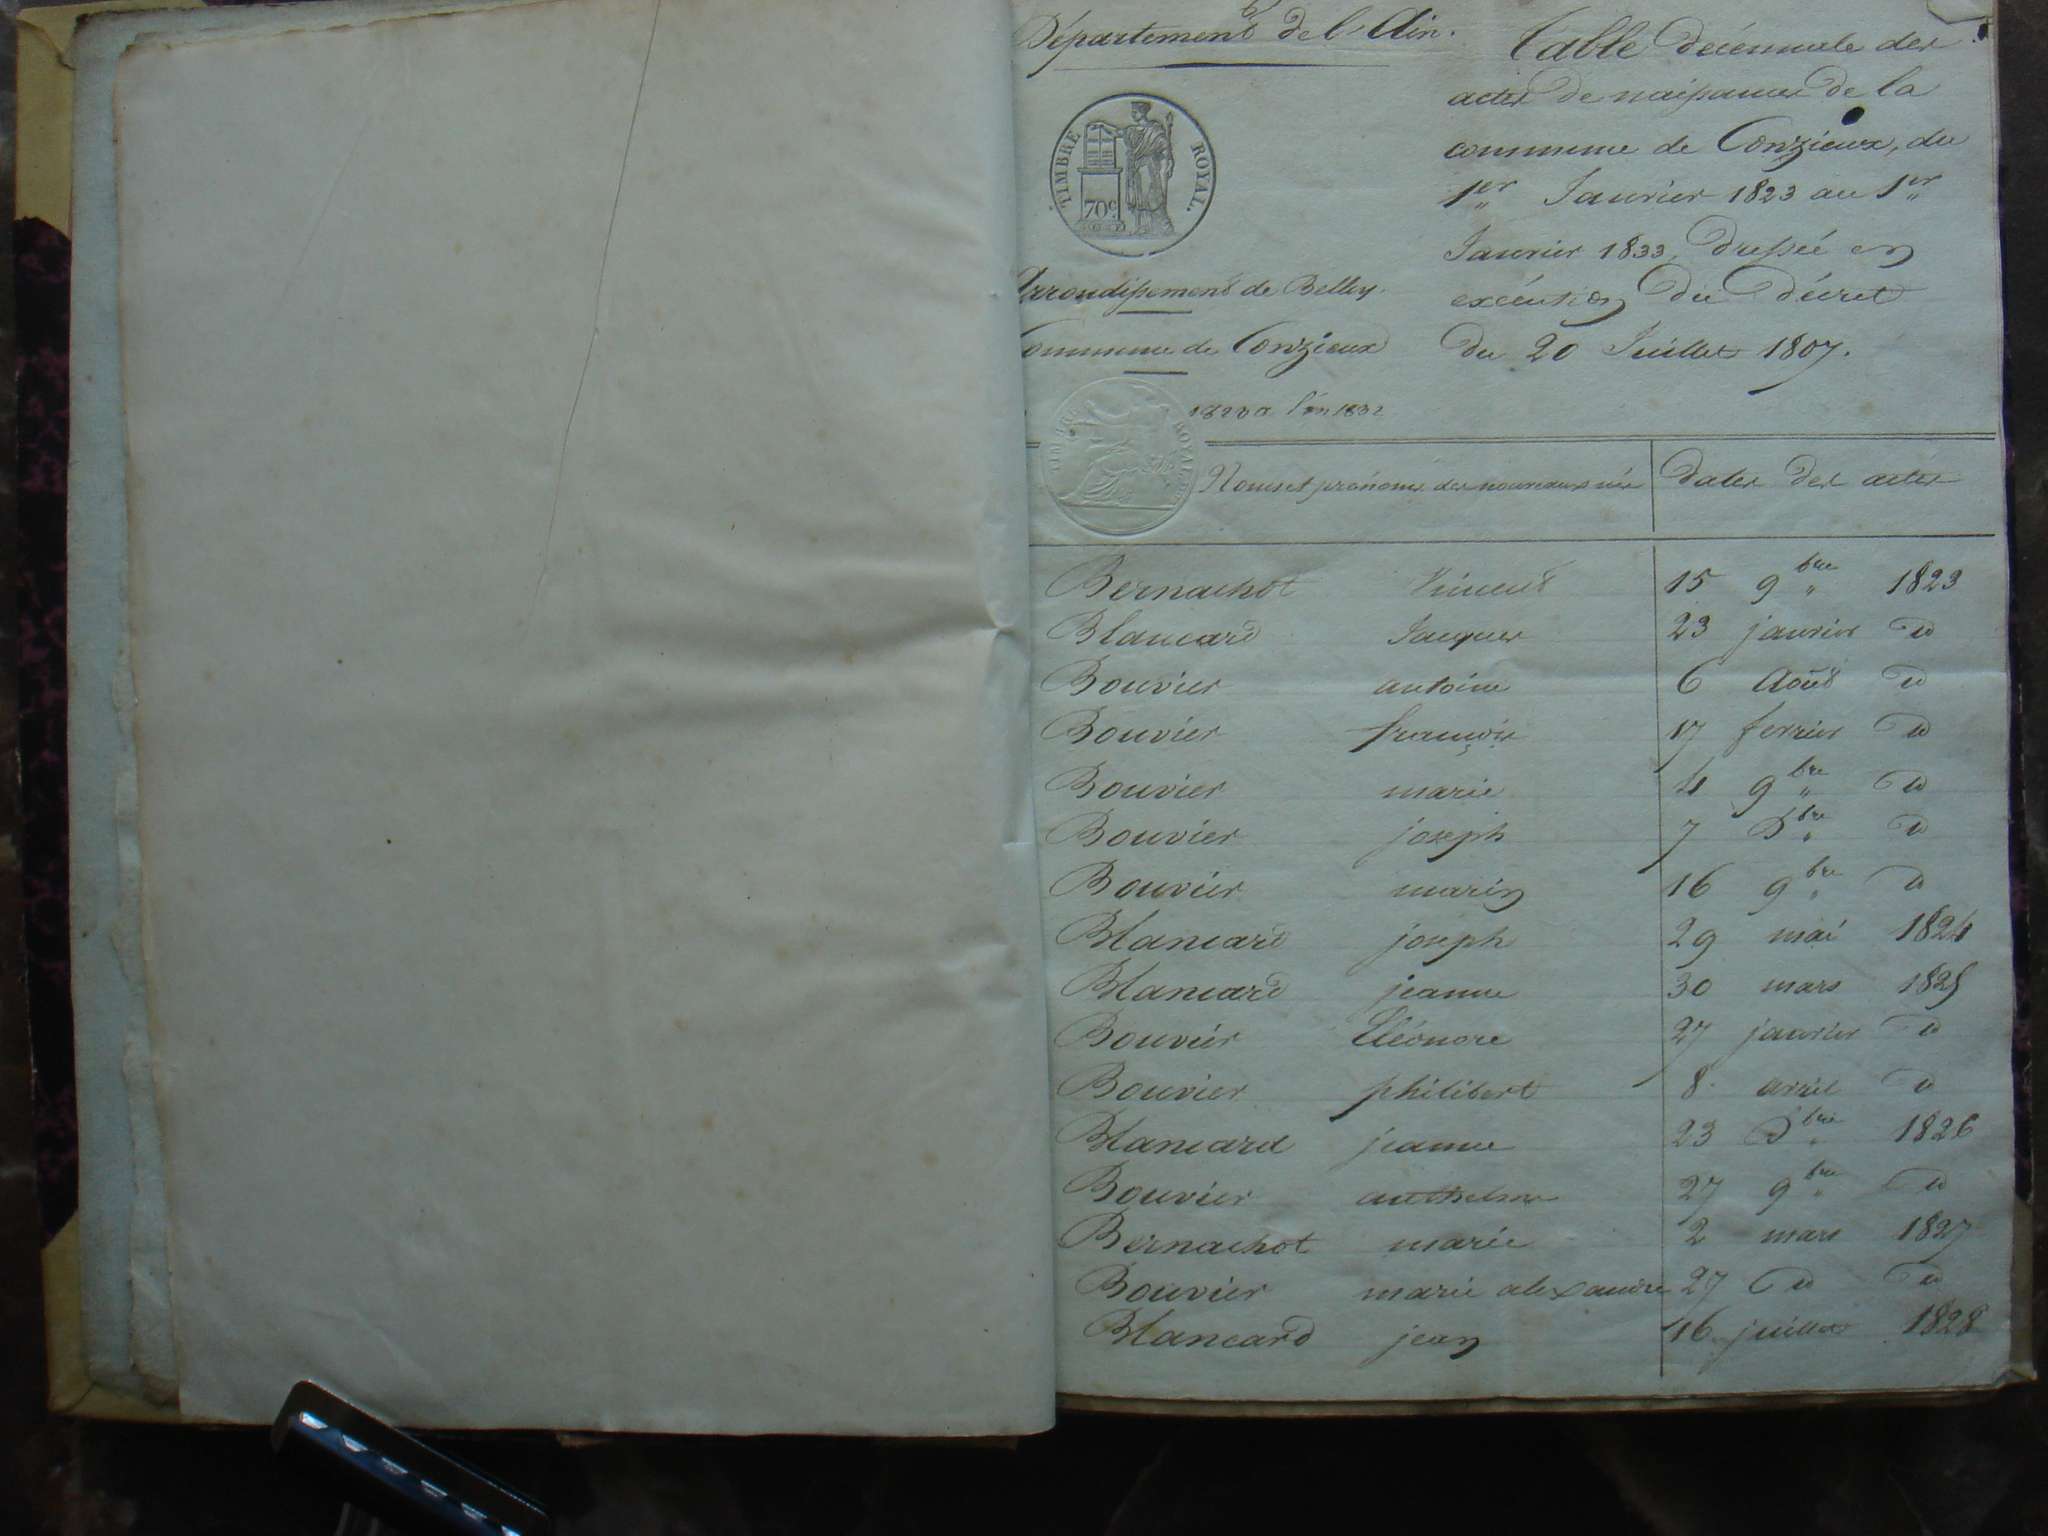 Département de l'Ain.
Table décennale des
actes de naissance de la
commune de Conzieux, du
1er Janvier 1823 au 1er
Janvier 1833, dressée en
exécution du décret
du 20 Juillet 1807.
TIMBRE ROYAL.
70c
Arrondissement de Belley.
Commune de Conzieux
1823 a l'an 1832
TIMBRE ROYAL
Noms et prénoms des nouveaux nés Dates des actes
Bernachot Vincent 15 9bre 1823
Blancard Jacques 23 janvier d
Bouvier antoine 6 Août d
Bouvier françois 17 fevrier d
Bouvier marie 4 9bre d
Bouvier joseph 7 Dbre d
Bouvier marin 16 9bre d
Blancard joseph 29 mai 1824
Blancard jeanne 30 mars 1825
Bouvier Eléonore 27 janvier d
Bouvier philibert 8 avril d
Blancard jeanne 23 Dbre 1826
Bouvier anthelme 27 9bre d
Bernachot marie 2 mars 1827
Bouvier marie alexandre 27 d d
Blancard jean 16 juillet 1828